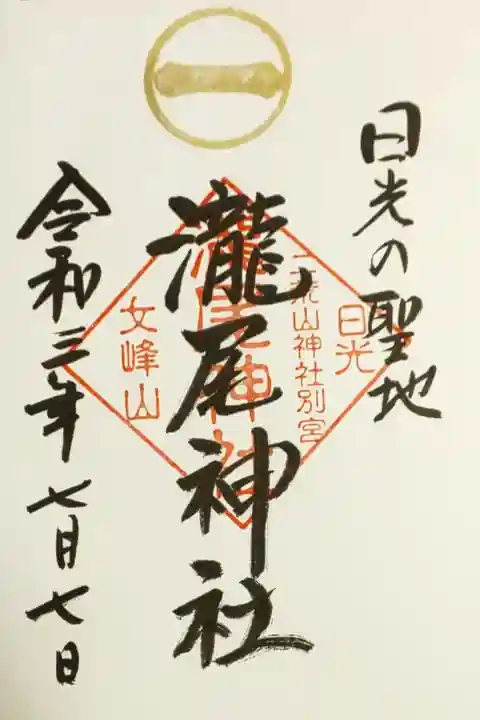 日光の聖地
日光
二荒山神社別宮
瀧尾神社
瀧尾神社
女峰山
令和三年 七月七日